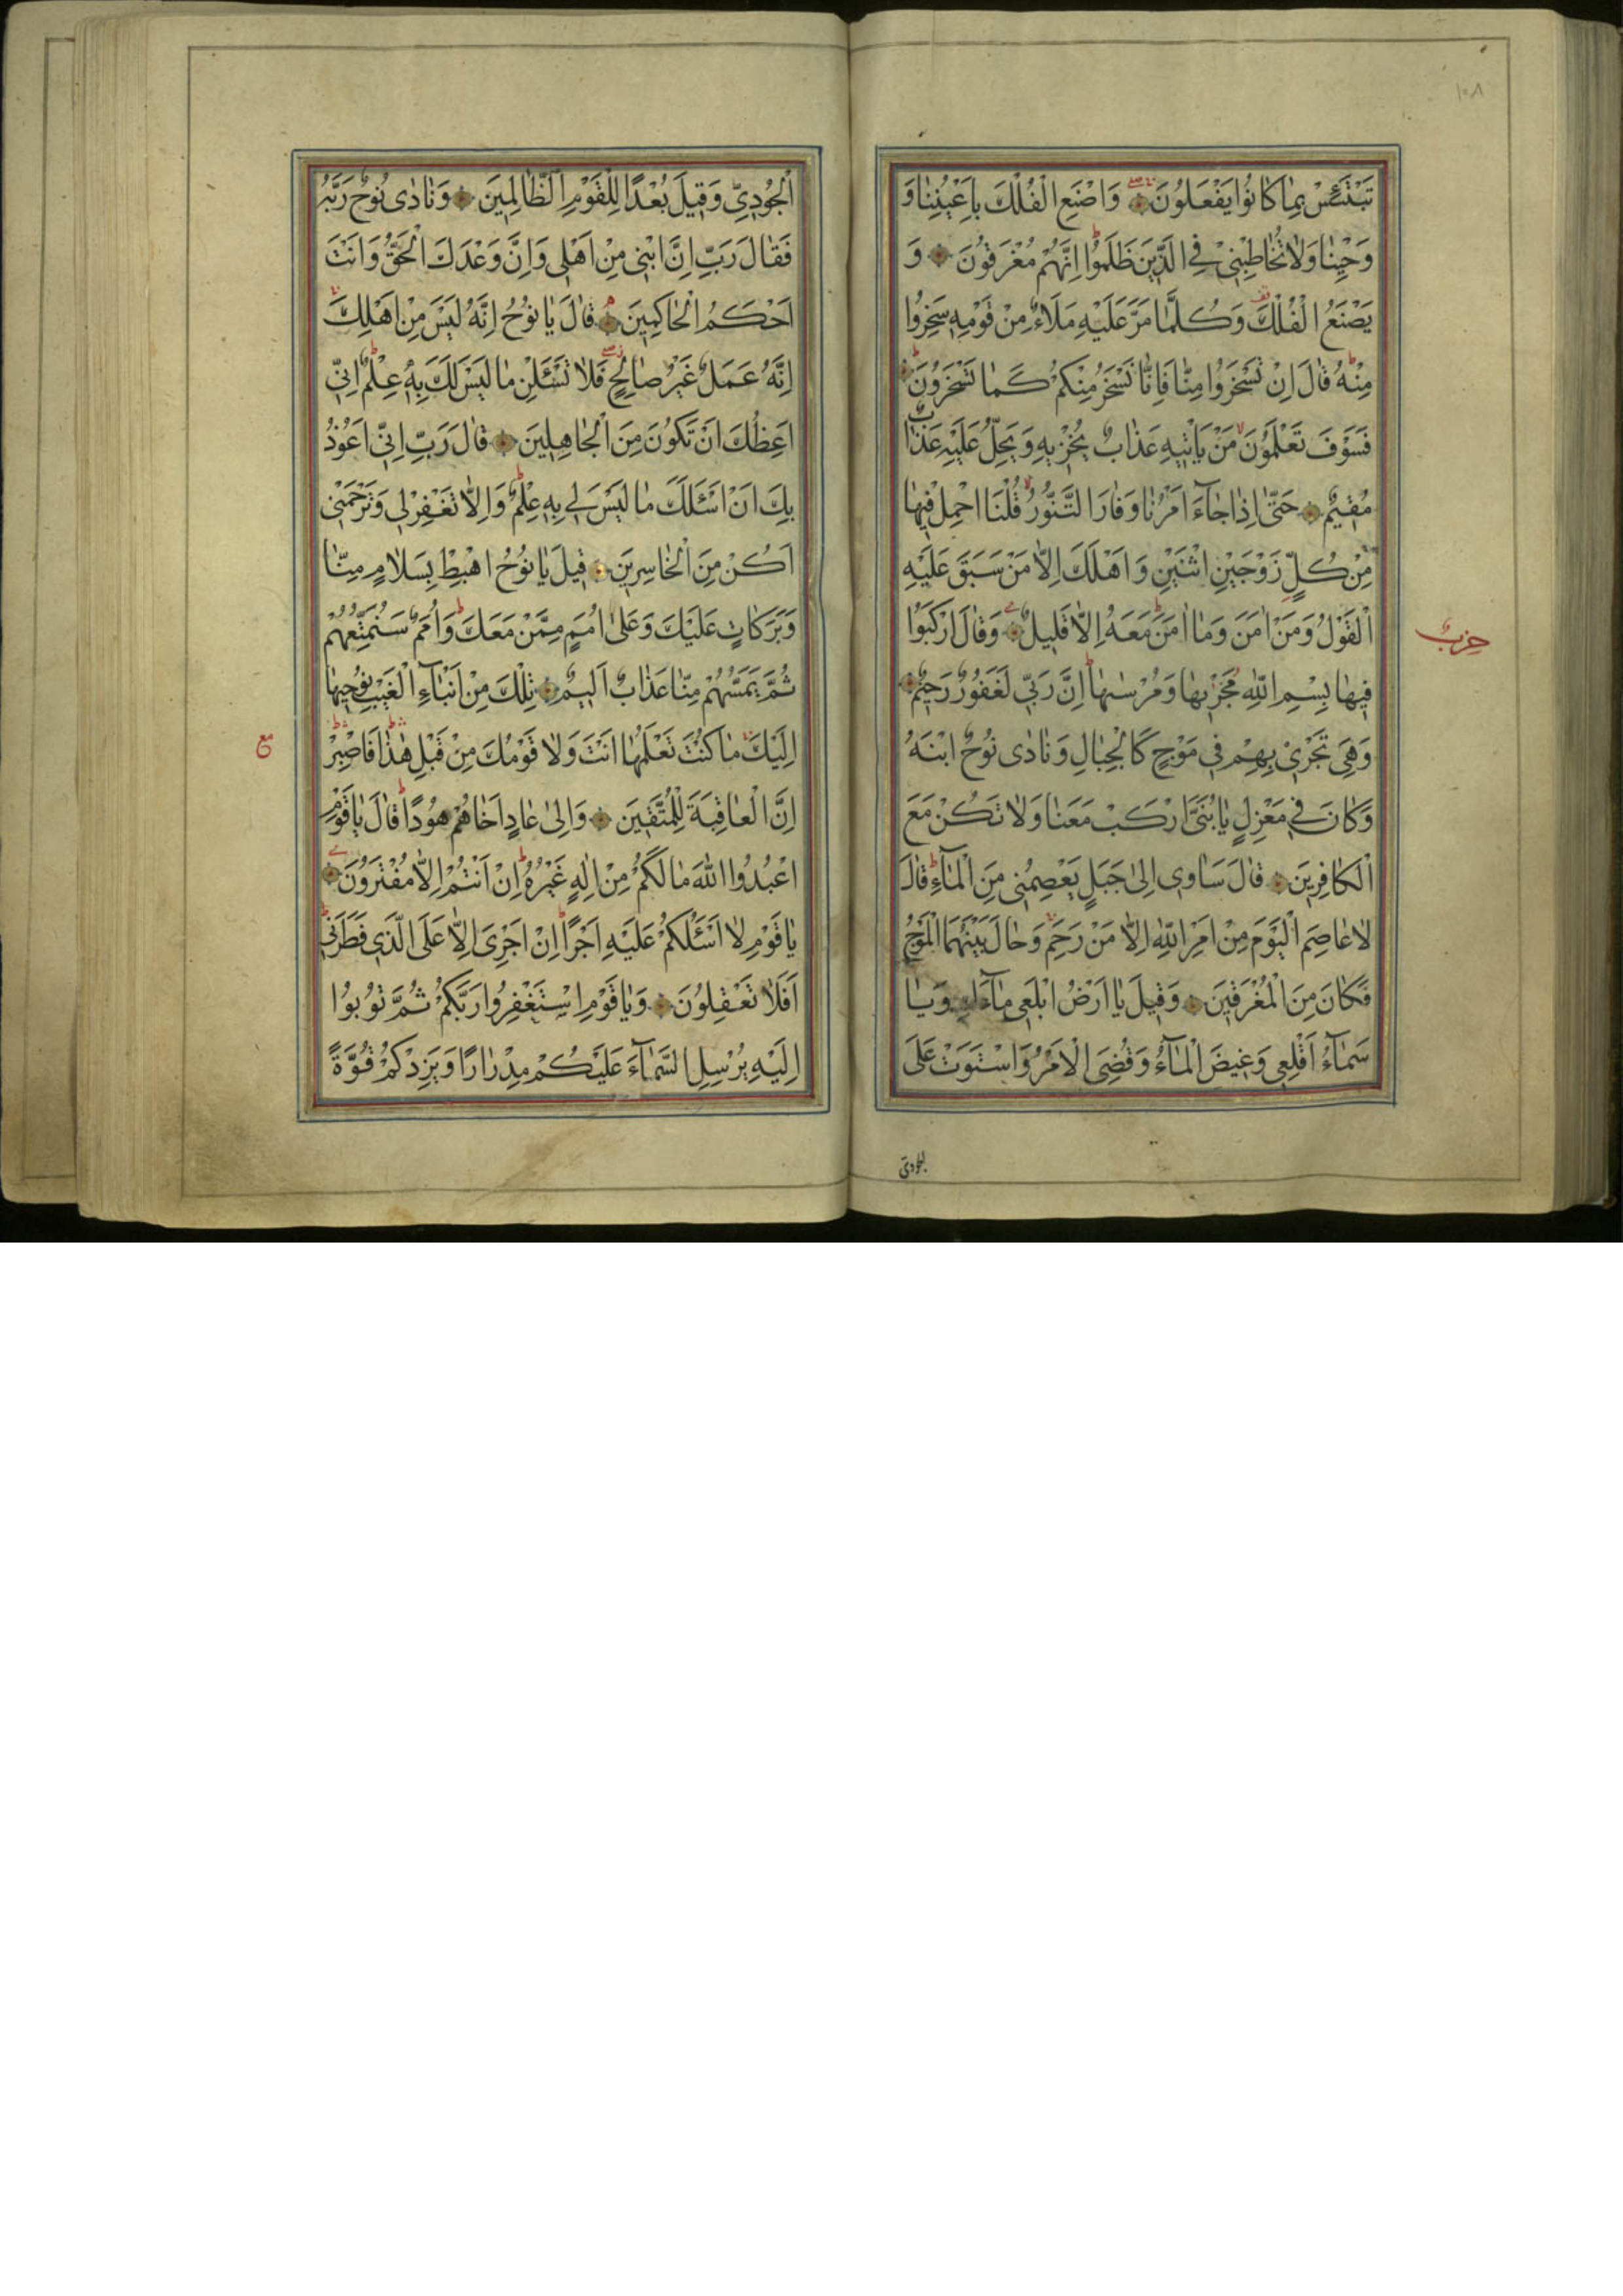 ١٠٨
تَبْتَئِسْ بِمَا كَانُوا يَفْعَلُونَ وَاصْنَعِ الْفُلْكَ بِاَعْيُنِنَا وَ
وَحْيِنَا وَلَا تُخَاطِبْنِي فِي الَّذِينَ ظَلَمُوا اِنَّهُمْ مُغْرَقُونَ وَ
يَصْنَعُ الْفُلْكَ وَكُلَّمَا مَرَّ عَلَيْهِ مَلَاءٌ مِنْ قَوْمِهِ سَخِرُوا
مِنْهُ قَالَ اِنْ تَسْخَرُوا مِنَّا فَاِنَّا نَسْخَرُ مِنْكُمْ كَمَا تَسْخَرُونَ
فَسَوْفَ تَعْلَمُونَ مَنْ يَاْتِيهِ عَذَابٌ يُخْزِيهِ وَيَحِلُّ عَلَيْهِ عَذَابٌ
مُقِيمٌ حَتَّى اِذَا جَآءَ اَمْرُنَا وَفَارَ التَّنُّورُ قُلْنَا احْمِلْ فِيهَا
مِنْ كُلٍّ زَوْجَيْنِ اثْنَيْنِ وَاَهْلَكَ اِلَّا مَنْ سَبَقَ عَلَيْهِ
الْقَوْلُ وَمَنْ اٰمَنَ وَمَا اٰمَنَ مَعَهُ اِلَّا قَلِيلٌ وَقَالَ ارْكَبُوا
حزب
فِيهَا بِسْمِ اللّٰهِ مَجْرٰيهَا وَمُرْسٰيهَا اِنَّ رَبِّي لَغَفُورٌ رَحِيمٌ
وَهِيَ تَجْرِي بِهِمْ فِي مَوْجٍ كَالْجِبَالِ وَنَادٰى نُوحٌ ابْنَهُ
وَكَانَ فِي مَعْزِلٍ يَا بُنَيَّ ارْكَبْ مَعَنَا وَلَا تَكُنْ مَعَ
الْكَافِرِينَ قَالَ سَاٰوِي اِلٰى جَبَلٍ يَعْصِمُنِي مِنَ الْمَآءِ قَالَ
لَا عَاصِمَ الْيَوْمَ مِنْ اَمْرِ اللّٰهِ اِلَّا مَنْ رَحِمَ وَحَالَ بَيْنَهُمَا الْمَوْجُ
فَكَانَ مِنَ الْمُغْرَقِينَ وَقِيلَ يَا اَرْضُ ابْلَعِي مَآءَكِ وَيَا
سَمَآءُ اَقْلِعِي وَغِيضَ الْمَآءُ وَقُضِيَ الْاَمْرُ وَاسْتَوَتْ عَلَى
الجودى
الْجُودِيِّ وَقِيلَ بُعْدًا لِلْقَوْمِ الظَّالِمِينَ وَنَادٰى نُوحٌ رَبَّهُ
فَقَالَ رَبِّ اِنَّ ابْنِي مِنْ اَهْلِي وَاِنَّ وَعْدَكَ الْحَقُّ وَاَنْتَ
اَحْكَمُ الْحَاكِمِينَ قَالَ يَا نُوحُ اِنَّهُ لَيْسَ مِنْ اَهْلِكَ
اِنَّهُ عَمَلٌ غَيْرُ صَالِحٍ فَلَا تَسْئَلْنِ مَا لَيْسَ لَكَ بِهِ عِلْمٌ اِنِّي
اَعِظُكَ اَنْ تَكُونَ مِنَ الْجَاهِلِينَ قَالَ رَبِّ اِنِّي اَعُوذُ
بِكَ اَنْ اَسْئَلَكَ مَا لَيْسَ لِي بِهِ عِلْمٌ وَاِلَّا تَغْفِرْ لِي وَتَرْحَمْنِي
اَكُنْ مِنَ الْخَاسِرِينَ قِيلَ يَا نُوحُ اهْبِطْ بِسَلَامٍ مِنَّا
وَبَرَكَاتٍ عَلَيْكَ وَعَلٰى اُمَمٍ مِمَّنْ مَعَكَ وَاُمَمٌ سَنُمَتِّعُهُمْ
ثُمَّ يَمَسُّهُمْ مِنَّا عَذَابٌ اَلِيمٌ تِلْكَ مِنْ اَنْبَآءِ الْغَيْبِ نُوحِيهَا
اِلَيْكَ مَا كُنْتَ تَعْلَمُهَا اَنْتَ وَلَا قَوْمُكَ مِنْ قَبْلِ هٰذَا فَاصْبِرْ
مع
اِنَّ الْعَاقِبَةَ لِلْمُتَّقِينَ وَاِلٰى عَادٍ اَخَاهُمْ هُودًا قَالَ يَا قَوْمِ
اعْبُدُوا اللّٰهَ مَا لَكُمْ مِنْ اِلٰهٍ غَيْرُهُ اِنْ اَنْتُمْ اِلَّا مُفْتَرُونَ
يَا قَوْمِ لَا اَسْئَلُكُمْ عَلَيْهِ اَجْرًا اِنْ اَجْرِيَ اِلَّا عَلَى الَّذِي فَطَرَنِي
اَفَلَا تَعْقِلُونَ وَيَا قَوْمِ اسْتَغْفِرُوا رَبَّكُمْ ثُمَّ تُوبُوا
اِلَيْهِ يُرْسِلِ السَّمَآءَ عَلَيْكُمْ مِدْرَارًا وَيَزِدْكُمْ قُوَّةً